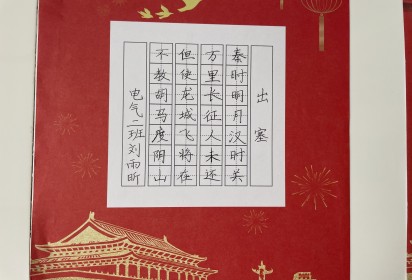 出塞
秦时明月汉时关
万里长征人未还
但使龙城飞将在
不教胡马度阴山
电气二班刘雨昕